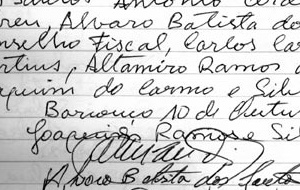 Antonio
reu, Alvaro Batista do
nselho Fiscal, Carlos
rtins, Altamiro Ramos
quim do Carmo e Silv
Barroso 10 de Outu
Joaquim Ramos e Si
Alvaro Batista dos Santo